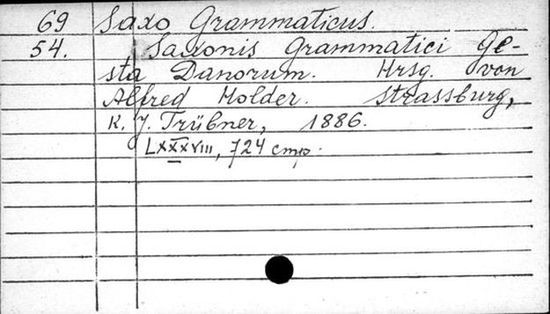 69 Saxo Grammaticus.
54. Saxonis Grammatici Ge-
sta Danorum. Hrsg. von
Alfred Holder. Strassburg,
K. J. Trübner, 1886.
LXXXVIII, 724 стр.